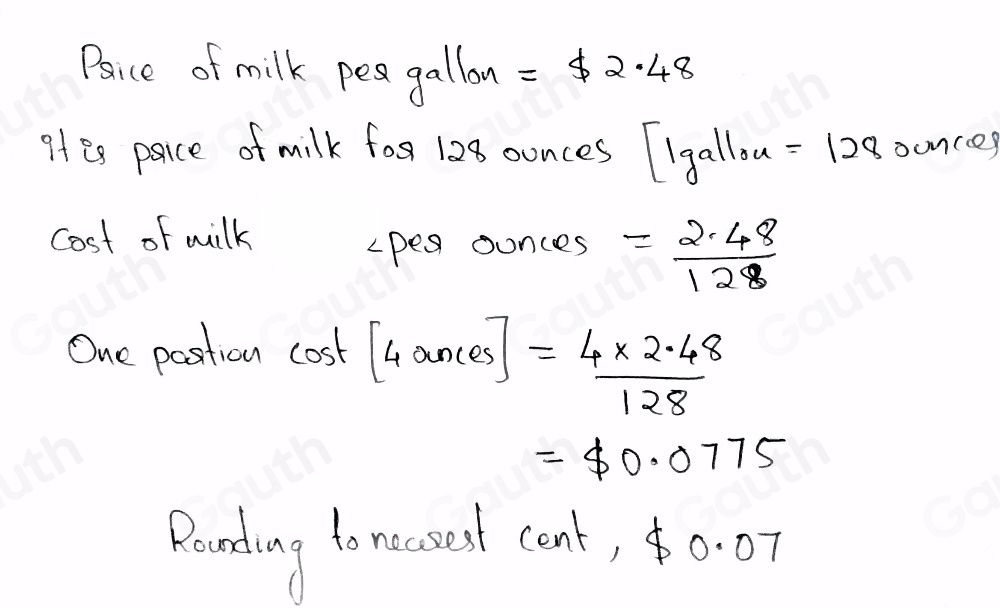 Price of milk per gallon = $ 2.48
It is price of milk for 128 ounces [1 gallon = 128 ounces
Cost of milk per ounces = 2.48/128
One portion cost [4 ounces] = 4 x 2.48/128
= $0.0775
Rounding to nearest cent, $ 0.07